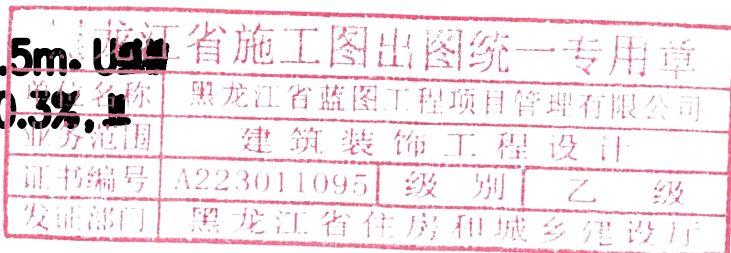 黑龙江省施工图出图统一专用章
.5m.
单位名称 黑龙江省蓝图工程项目管理有限公司
0.3%,
业务范围 建筑装饰工程设计
证书编号 A223011095 级别 乙级
发证部门 黑龙江省住房和城乡建设厅